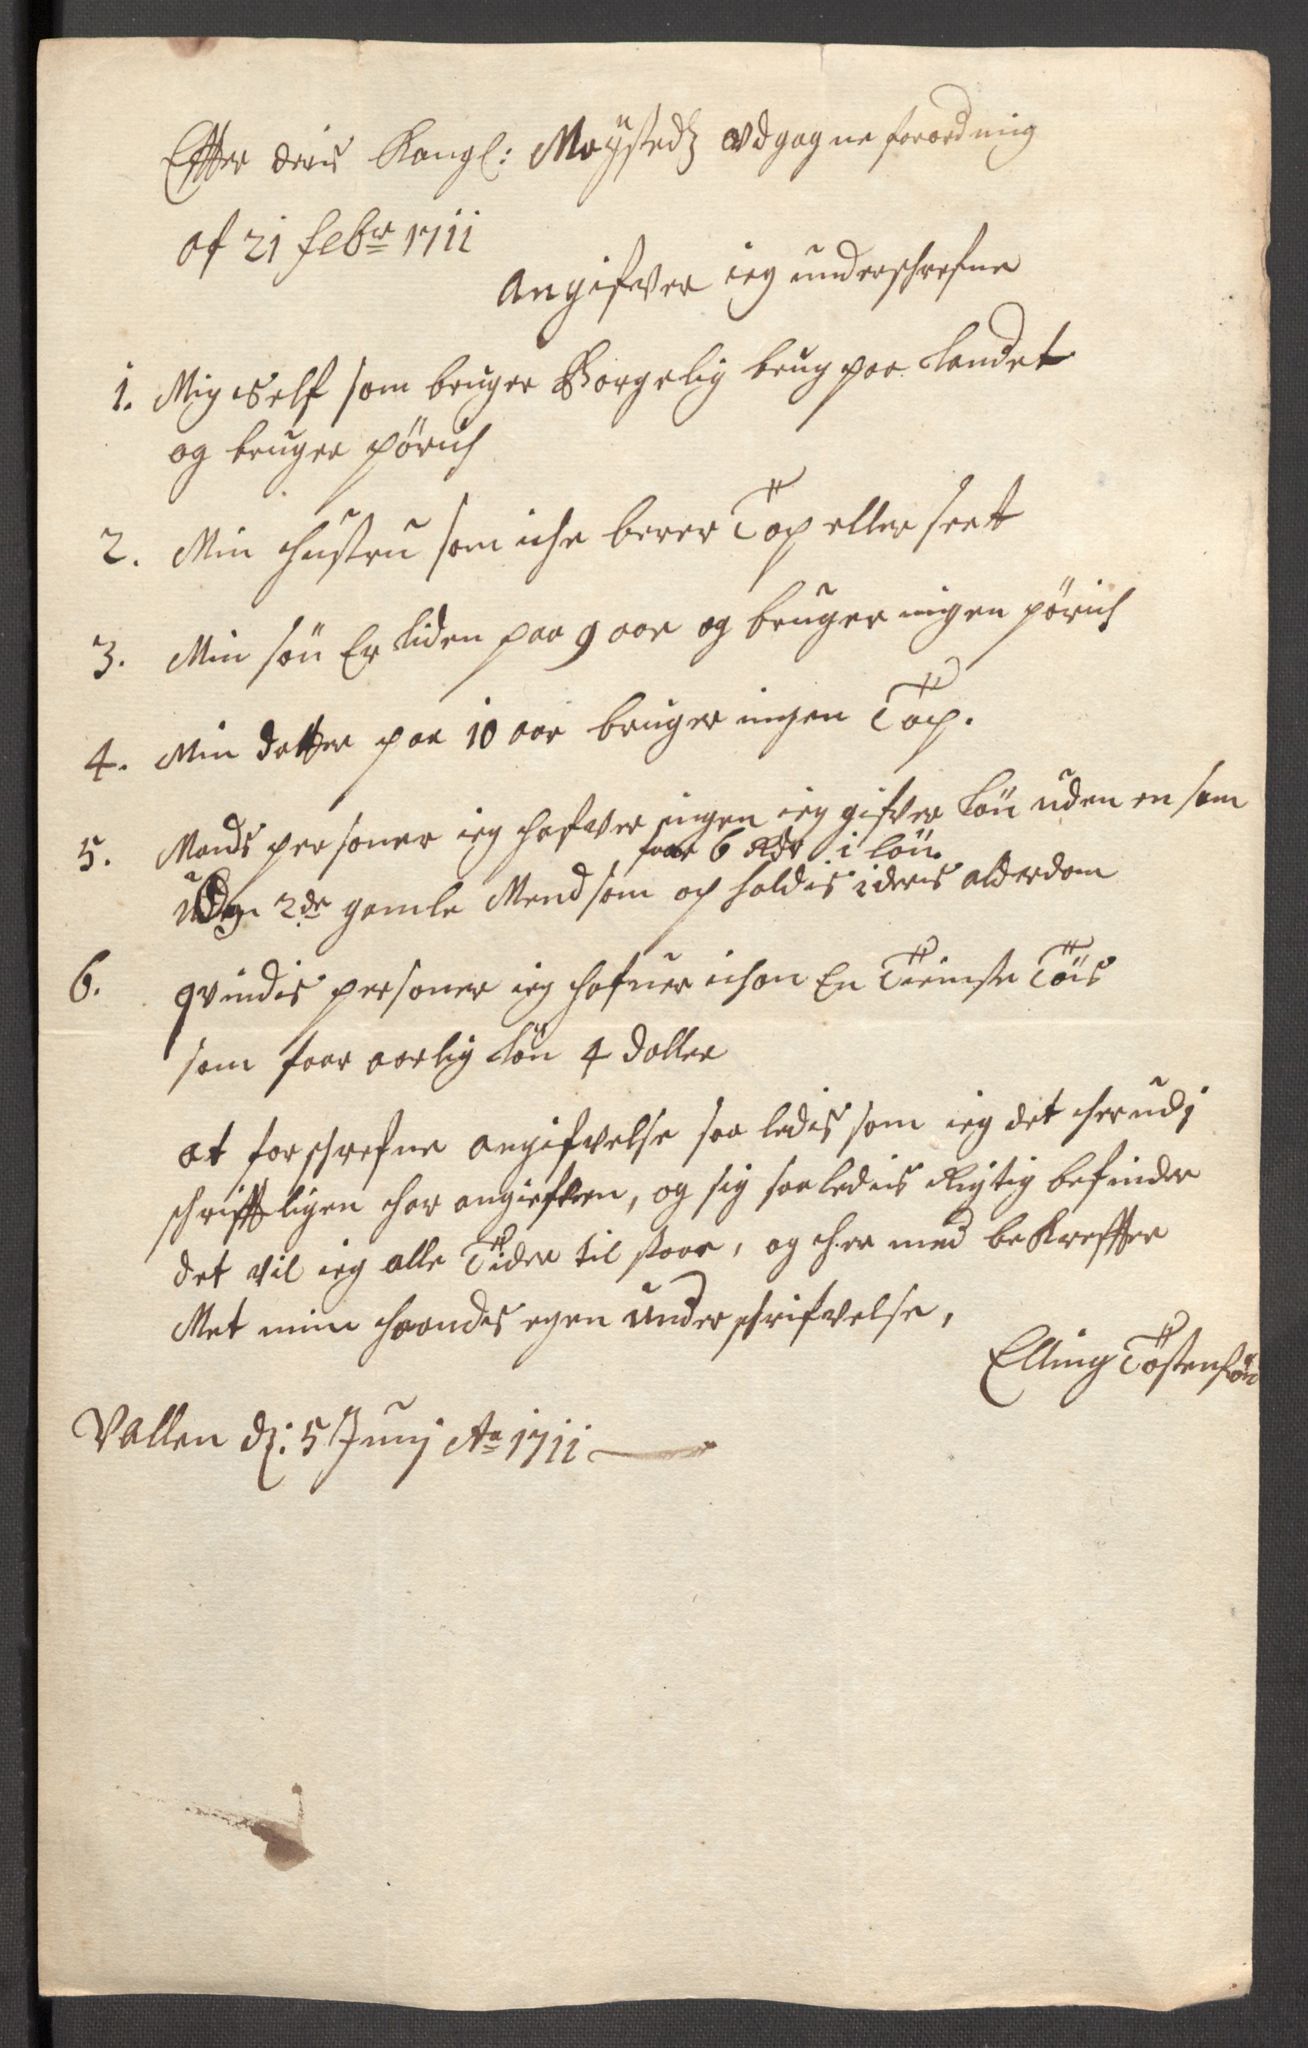 Effter deris Kongl: Maÿstedz vdgagne forordning
af 21 febr 1711
Angifver ieg underschrefne
1. Mig self som bruger Borgelig brug paa Landet
og bruger pörich
2. Min hustru som iche berer Top eller sett
3. Min sön Er Liden paa 9 aar og bruger ingen pörich
4. Min datter paa 10 aar bruger ingen Top.
5. Mands personer ieg hafver ingen ieg gifver Lön uden en som
faar 6 Rdr i lön.
uden 2de gamle Mend som op holdis i deris alderdom
6. qvindis personer ieg hafuer ichon En Tieniste Töis
som faar aarlig Lön 4 daller
at forschrefne angifvelse saa ledis som ieg det herudj
schrifftligen har angiefven, og sig saaledeis Rigtig befinder
det vil ieg alle Tider til staar, og her med bekreffter
Met min haands egen underschrifvelse,
Elling Töstensön
Vallen dz: 5 Junj Ao 1711